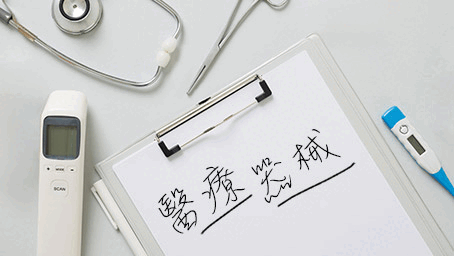 醫療器械
MODE
SCAN